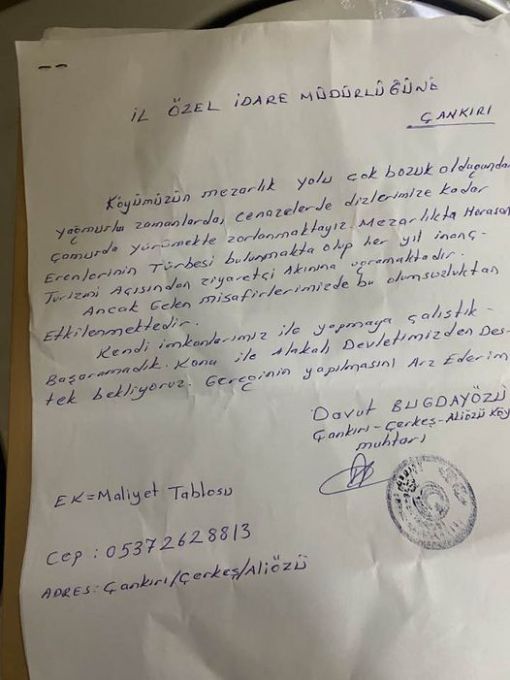 İL ÖZEL İDARE MÜDÜRLÜĞÜNE
ÇANKIRI
Köyümüzün mezarlık yolu çok bozuk olduğundan
yağmurlu zamanlarda, cenazelerde dizlerimize kadar
çamurda yürümekte zorlanmaktayız. Mezarlıkta Horasan
Erenlerinin Türbesi bulunmakta olup her yıl inanç-
Turizmi Açısından ziyaretçi Akınına uğramaktadır.
Ancak Gelen misafirlerimizde bu olumsuzluktan
Etkilenmektedir.
Kendi imkanlarımız ile yapmaya çalıştık-
Başaramadık. Konu ile Alakalı Devletimizden Des-
tek bekliyoruz. Gereğinin yapılmasını Arz Ederim
Davut BUGDAYÖZÜ
Çankırı-Çerkeş-Aliözü Köy
muhtarı
EK=Maliyet Tablosu
Cep: 05372628813
ADRES: Çankırı/Çerkeş/Aliözü